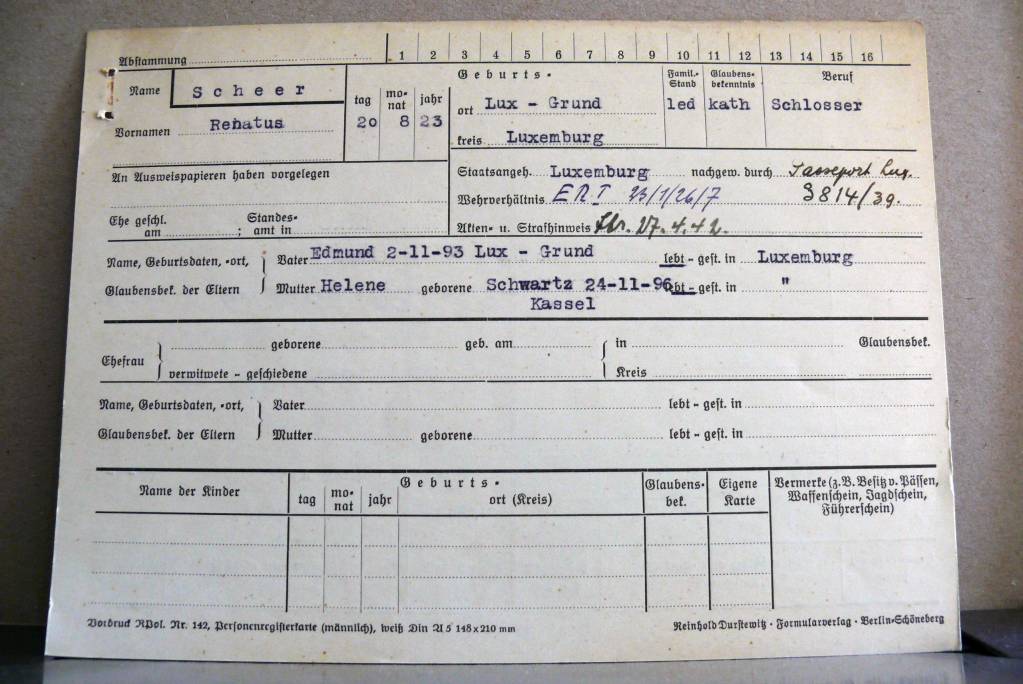 Abstammung 1 2 3 4 5 6 7 8 9 10 11 12 13 14 15 16
Name Scheer
Vornamen Renatus
tag monat jahr
20 8 23
Geburts-
ort Lux - Grund
kreis Luxemburg
Famil.-Stand
led
Glaubens-bekenntnis
kath
Beruf
Schlosser
An Ausweispapieren haben vorgelegen
Ehe geschl. am ; Standes-amt in
Staatsangeh. Luxemburg nachgew. durch Passeport Lux.
Wehrverhältnis ER I 23/1/26/7 3814/39.
Akten- u. Strafhinweis Str. 27.4.42.
Name, Geburtsdaten, -ort, Vater Edmund 2-11-93 Lux - Grund lebt - gest. in Luxemburg
Glaubensbek. der Eltern Mutter Helene geborene Schwartz 24-11-96 lebt - gest. in "
Kassel
Ehefrau geborene geb. am in Glaubensbek.
verwitwete - geschiedene Kreis
Name, Geburtsdaten, -ort, Vater lebt - gest. in
Glaubensbek. der Eltern Mutter geborene lebt - gest. in
Name der Kinder
Geburts-
tag monat jahr ort (Kreis)
Glaubens-bek.
Eigene Karte
Vermerke (z.B. Besitz v. Pässen,
Waffenschein, Jagdschein,
Führerschein)
Vordruck RPol. Nr. 142, Personenregisterkarte (männlich), weiß Din A 5 148 x 210 mm
Reinhold Durstewitz · Formularverlag · Berlin-Schöneberg